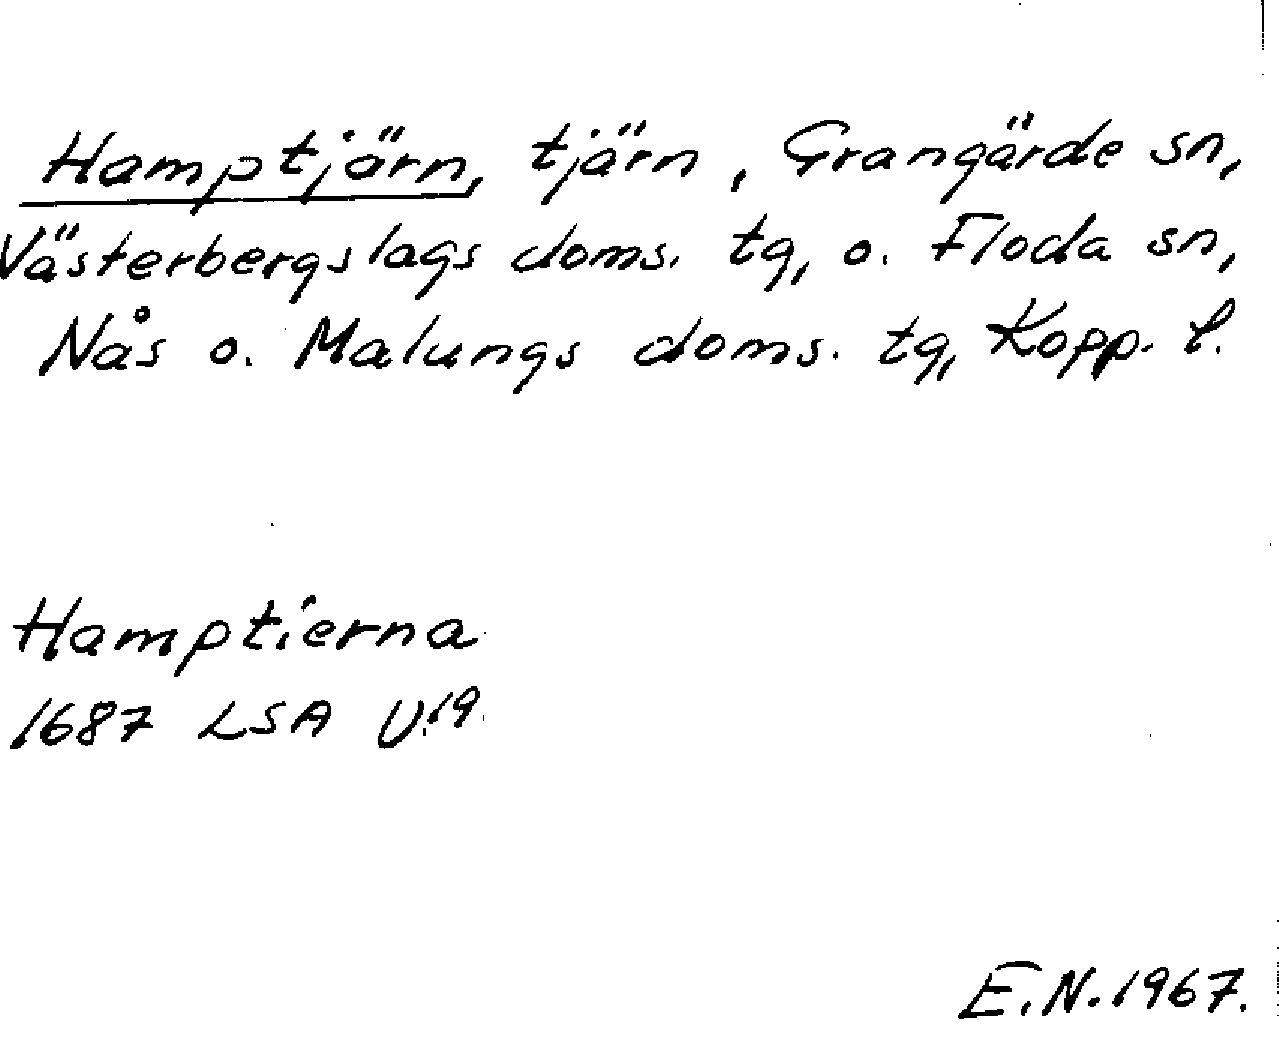 Hamptjärn, tjärn, Grangärde sn,
Västerbergslags doms. tg, o. Floda sn,
Nås o. Malungs doms. tg, Kopp. l.
Hamptierna
1687 LSA U:19.
E.N. 1967.